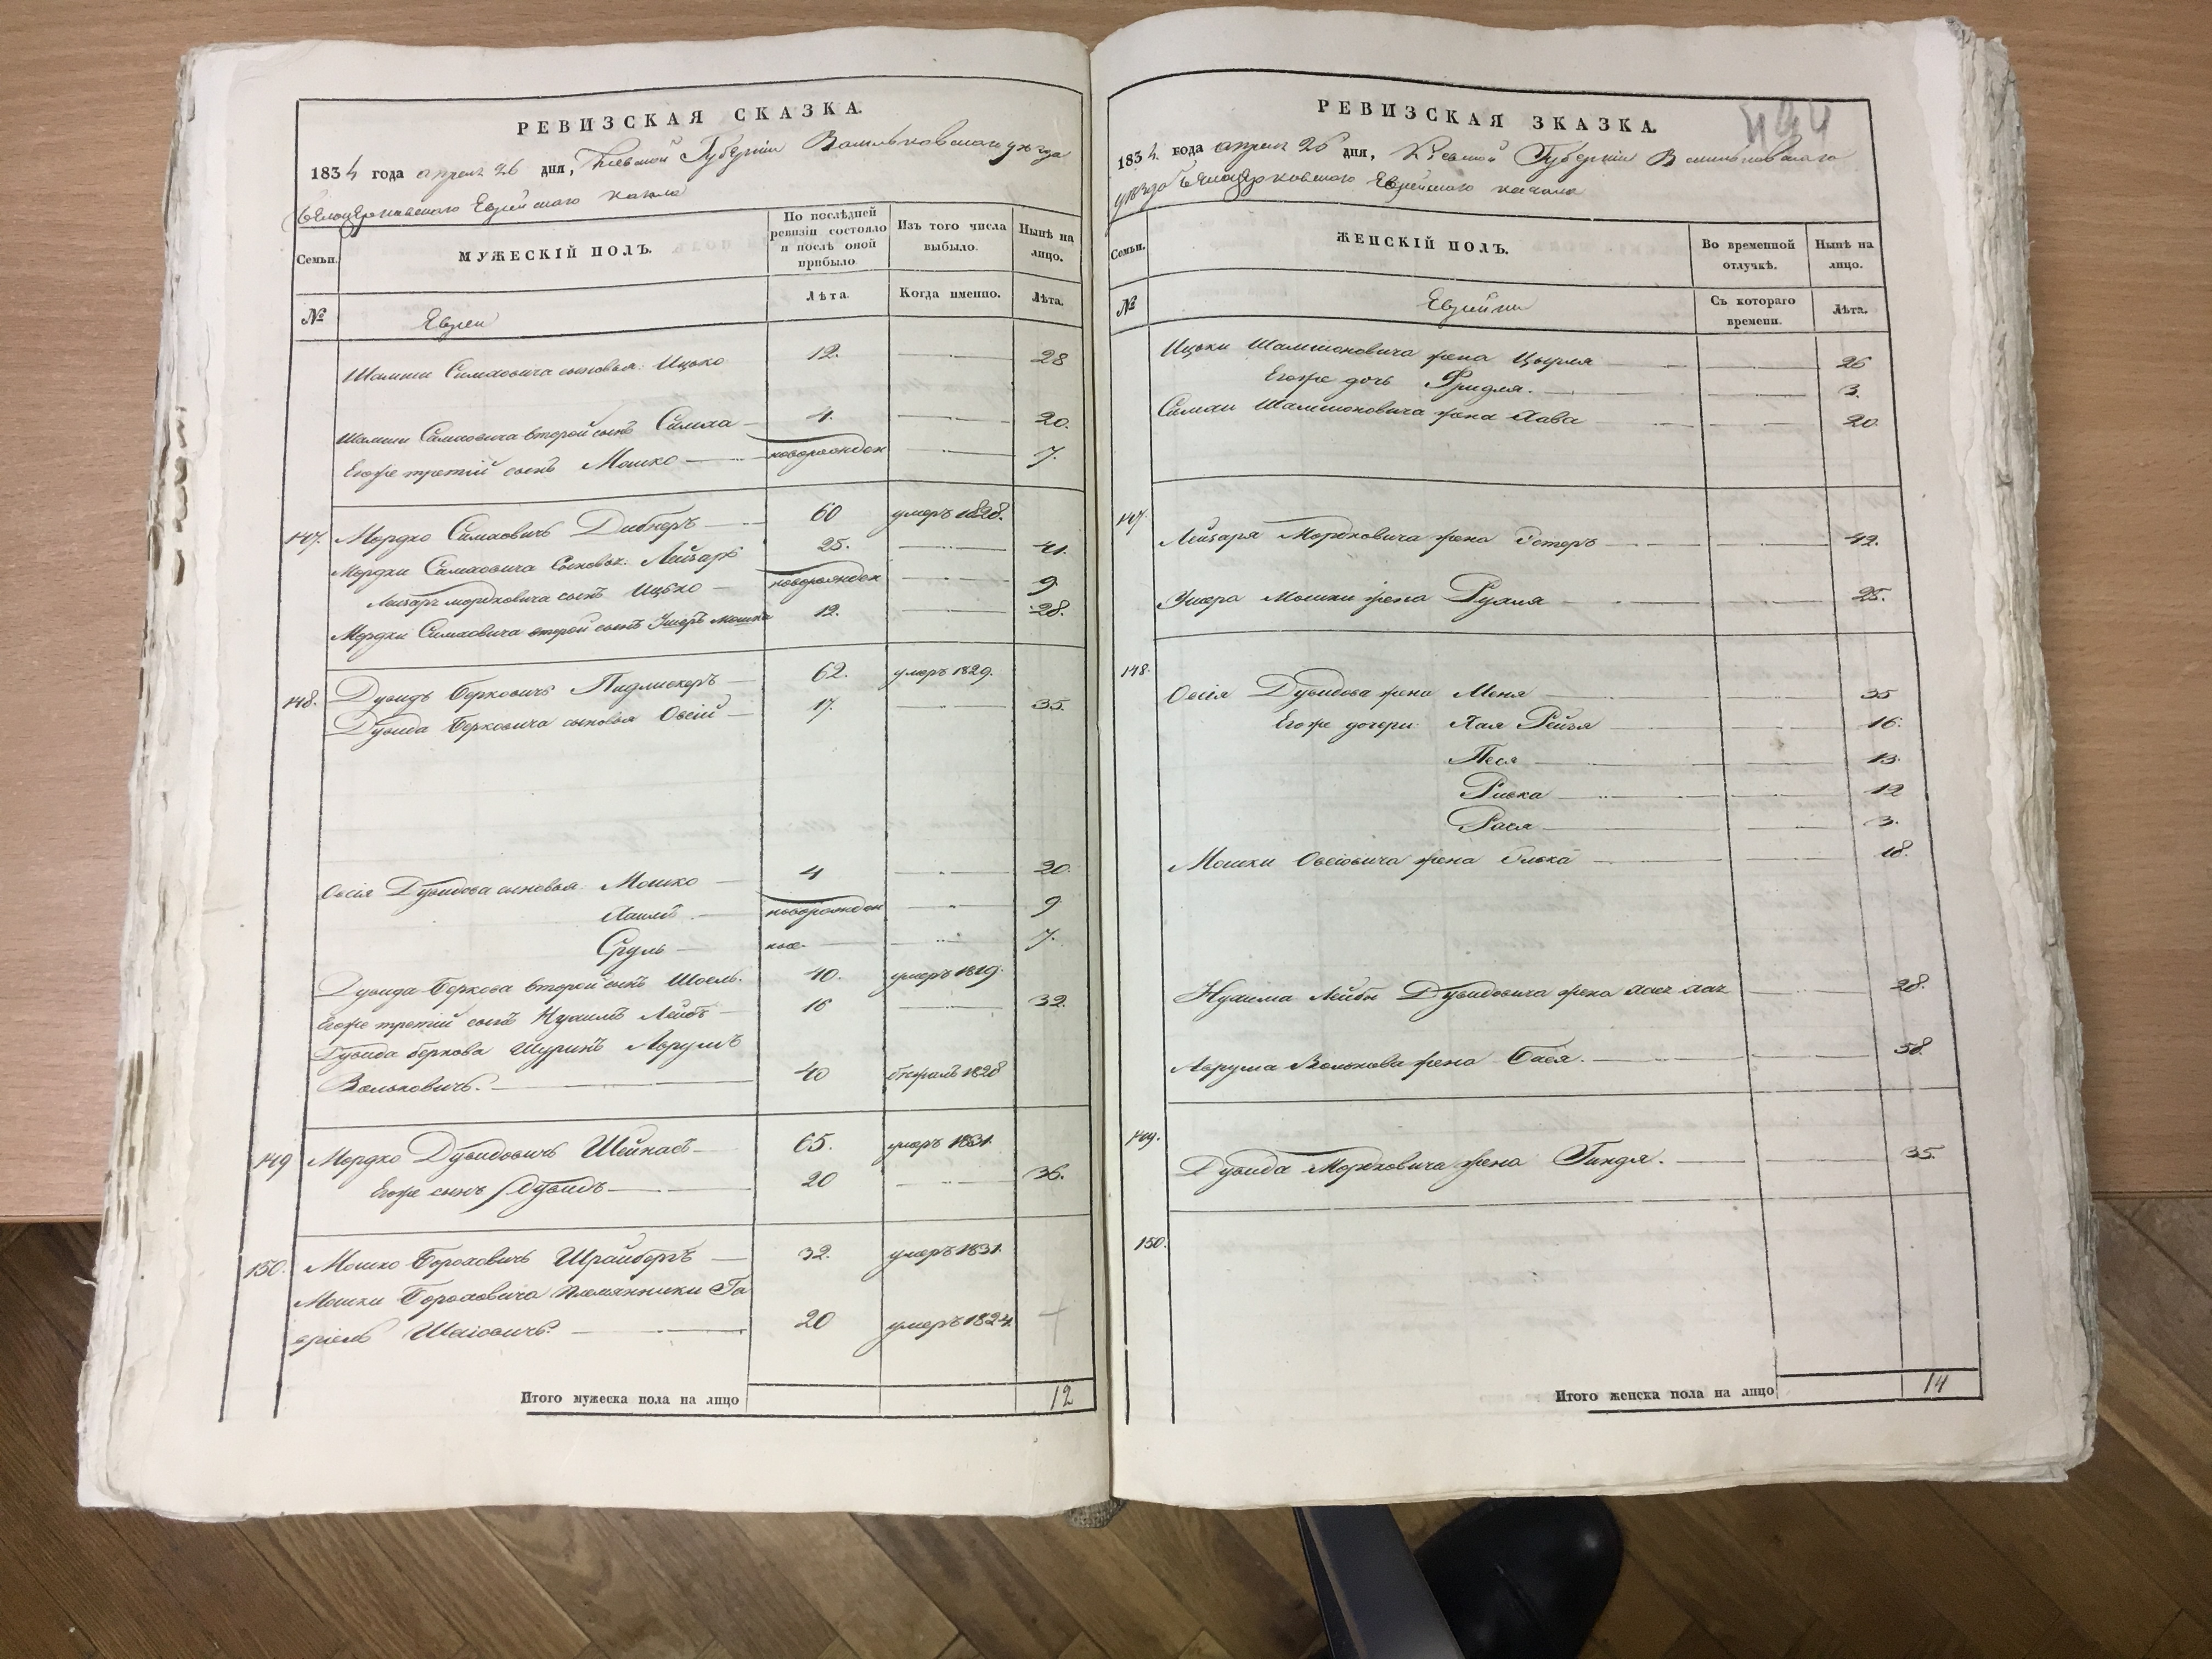 РЕВИЗСКАЯ СКАЗКА.
1834 года апреля 26 дня, Киевской Губерніи Васильковского уѣзда
Бѣлоцерковского Еврейского кагала
Семьи.
МУЖЕСКІЙ ПОЛЪ.
По послѣдней ревизіи состояло и послѣ оной прибыло
Изъ того числа выбыло.
Нынѣ на лицо.
№
Лѣта.
Когда именно.
Лѣта.
Евреи
Шамши Симховича сыновья: Ицько 12. 28
Шамши Симховича второй сынъ Симха 4. 20.
Егоже третій сынъ Мошко новорожден 7.
147. Мордко Симховичъ Дибнеръ 60 умеръ 1828.
Мордки Симховича Сыновья: Лейзаръ 25. 41.
Лейзаръ мордковича сынъ Ицько новорожден 9.
Мордки Симховича второй сынъ Ушеръ Мошка 12. 28.
148. Дувидъ Берковичъ Пидлискеръ 62. умеръ 1829.
Дувида Берковича сыновья Овсій 17. 35.
Овсія Дувидова сыновья. Мошко 4 20.
Хаимъ новорожден 9
Сруль 7.
Дувида Беркова второй сынъ Шоель. 40. умеръ 1819.
Егоже третій сынъ Нухимъ Лейбъ 16 32.
Дувида беркова Шуринъ Аврумъ
Вольковичъ. 40 1828
149 Мордко Дувидовичъ Шейнасъ 65. умеръ 1831.
Егоже сынъ Дувидъ 20 36.
150. Мошко Бороховичъ Шрайберъ 32. умеръ 1831.
Мошки Бороховича племянники Га
вріель Шаіовичъ. 20 умеръ 1824.
Итого мужеска пола на лицо 12
494
РЕВИЗСКАЯ ЗКАЗКА.
1834 года апреля 26 дня, Киевской Губерніи Васильковского
уѣзда Бѣлоцерковского Еврейского кагала
Семьи.
ЖЕНСКІЙ ПОЛЪ.
Во временной отлучкѣ.
Нынѣ на лицо.
№
Еврейки
Съ котораго времени.
Лѣта.
Ицьки Шамшоновича жена Цырля 26
Егоже дочь Фридля. 3.
Симхи Шамшоновича жена Хава 20.
147.
Лейзаря Мордковича жена Эстеръ 42.
Ушера Мошки жена Рухля 25.
148.
Овсія Дувидова жена Меня 35
Егоже дочери: Хая Рейзя 16.
Песя 13.
Ривка 12
Рася 3.
Мошки Овсіовича жена Элька 18.
Нухима Лейбы Дувидовича жена 28.
Аврума Волькова жена Бася. 58.
149.
Дувида Мордковича жена Гиндя. 35.
150.
Итого женска пола на лицо 14